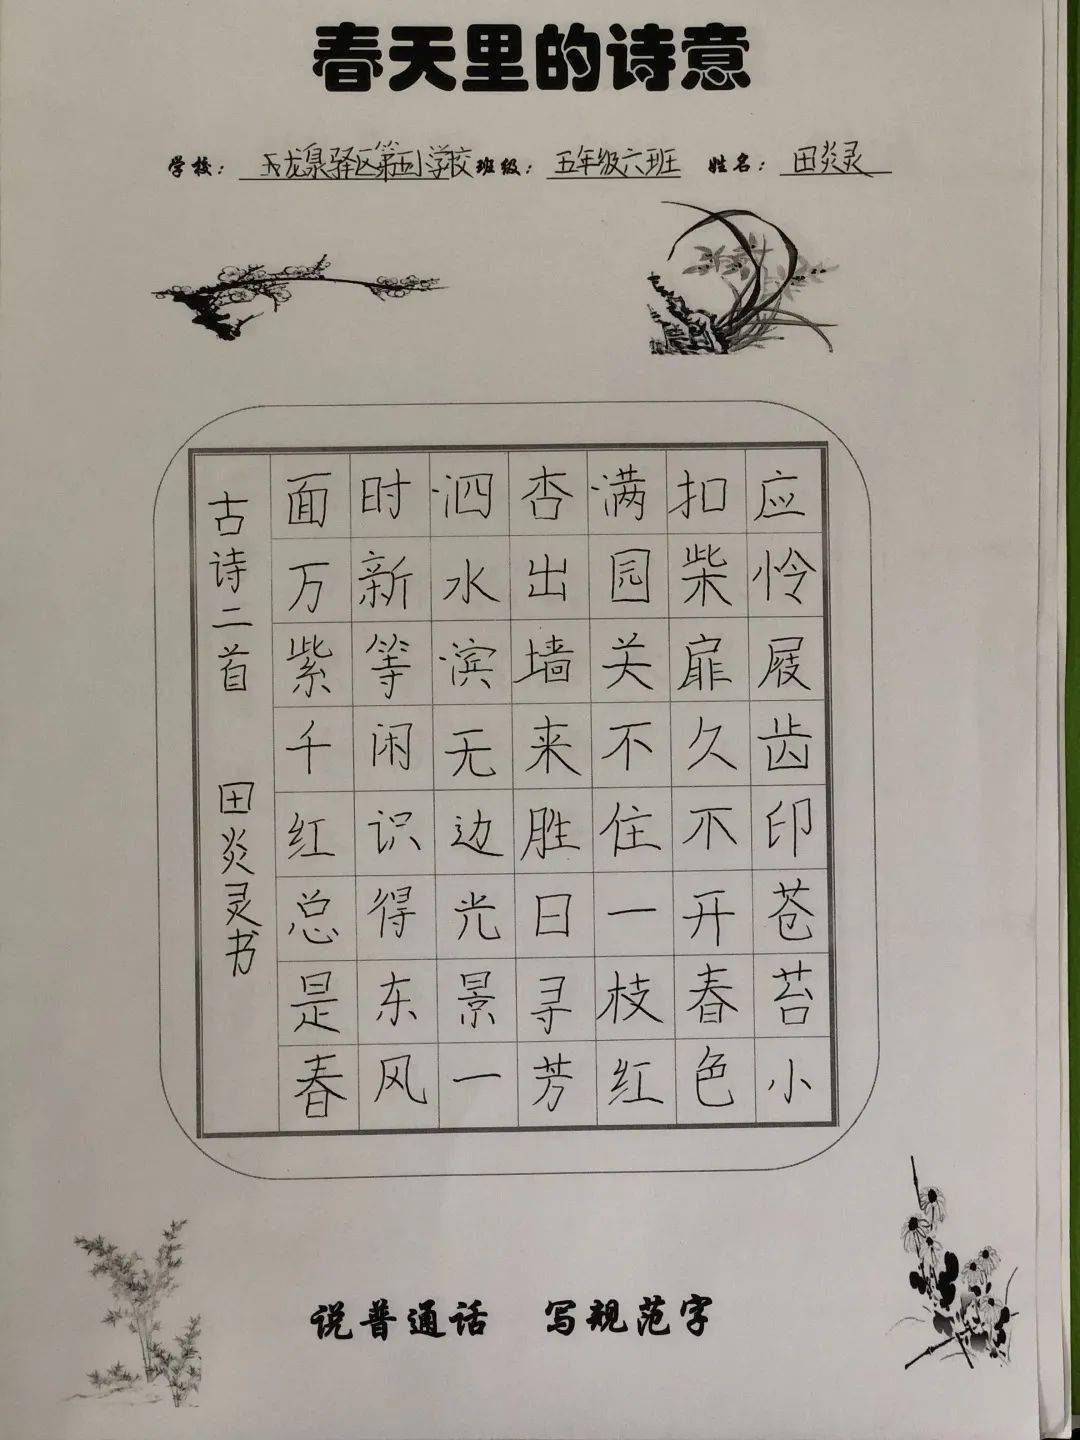 春天里的诗意
学校：龙泉驿区第四小学校 班级：五年级六班 姓名：田炎灵
应怜屐齿印苍苔小
扣柴扉久不开春色
满园关不住一枝红
杏出墙来胜日寻芳
泗水滨无边光景一
时新等闲识得东风
面万紫千红总是春
古诗二首 田炎灵书
说普通话 写规范字